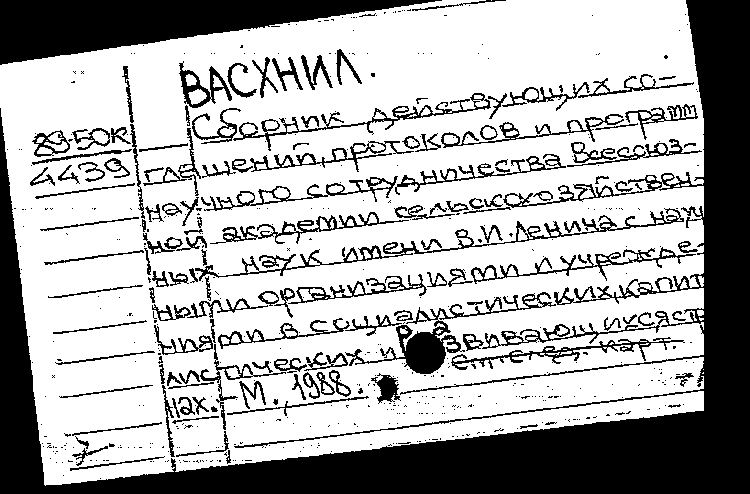 ВАСХНИЛ.
Сборник действующих со-
89-50к
4439
глашений, протоколов и программ
научного сотрудничества Всесоюз-
ной академии сельскохозяйствен-
ных наук имени В.И.Ленина с науч
ными организациями и учрежде-
ниями в социалистических, капит
листических и развивающихсястр
нах. - М., 1988.
см.след. карт.
7